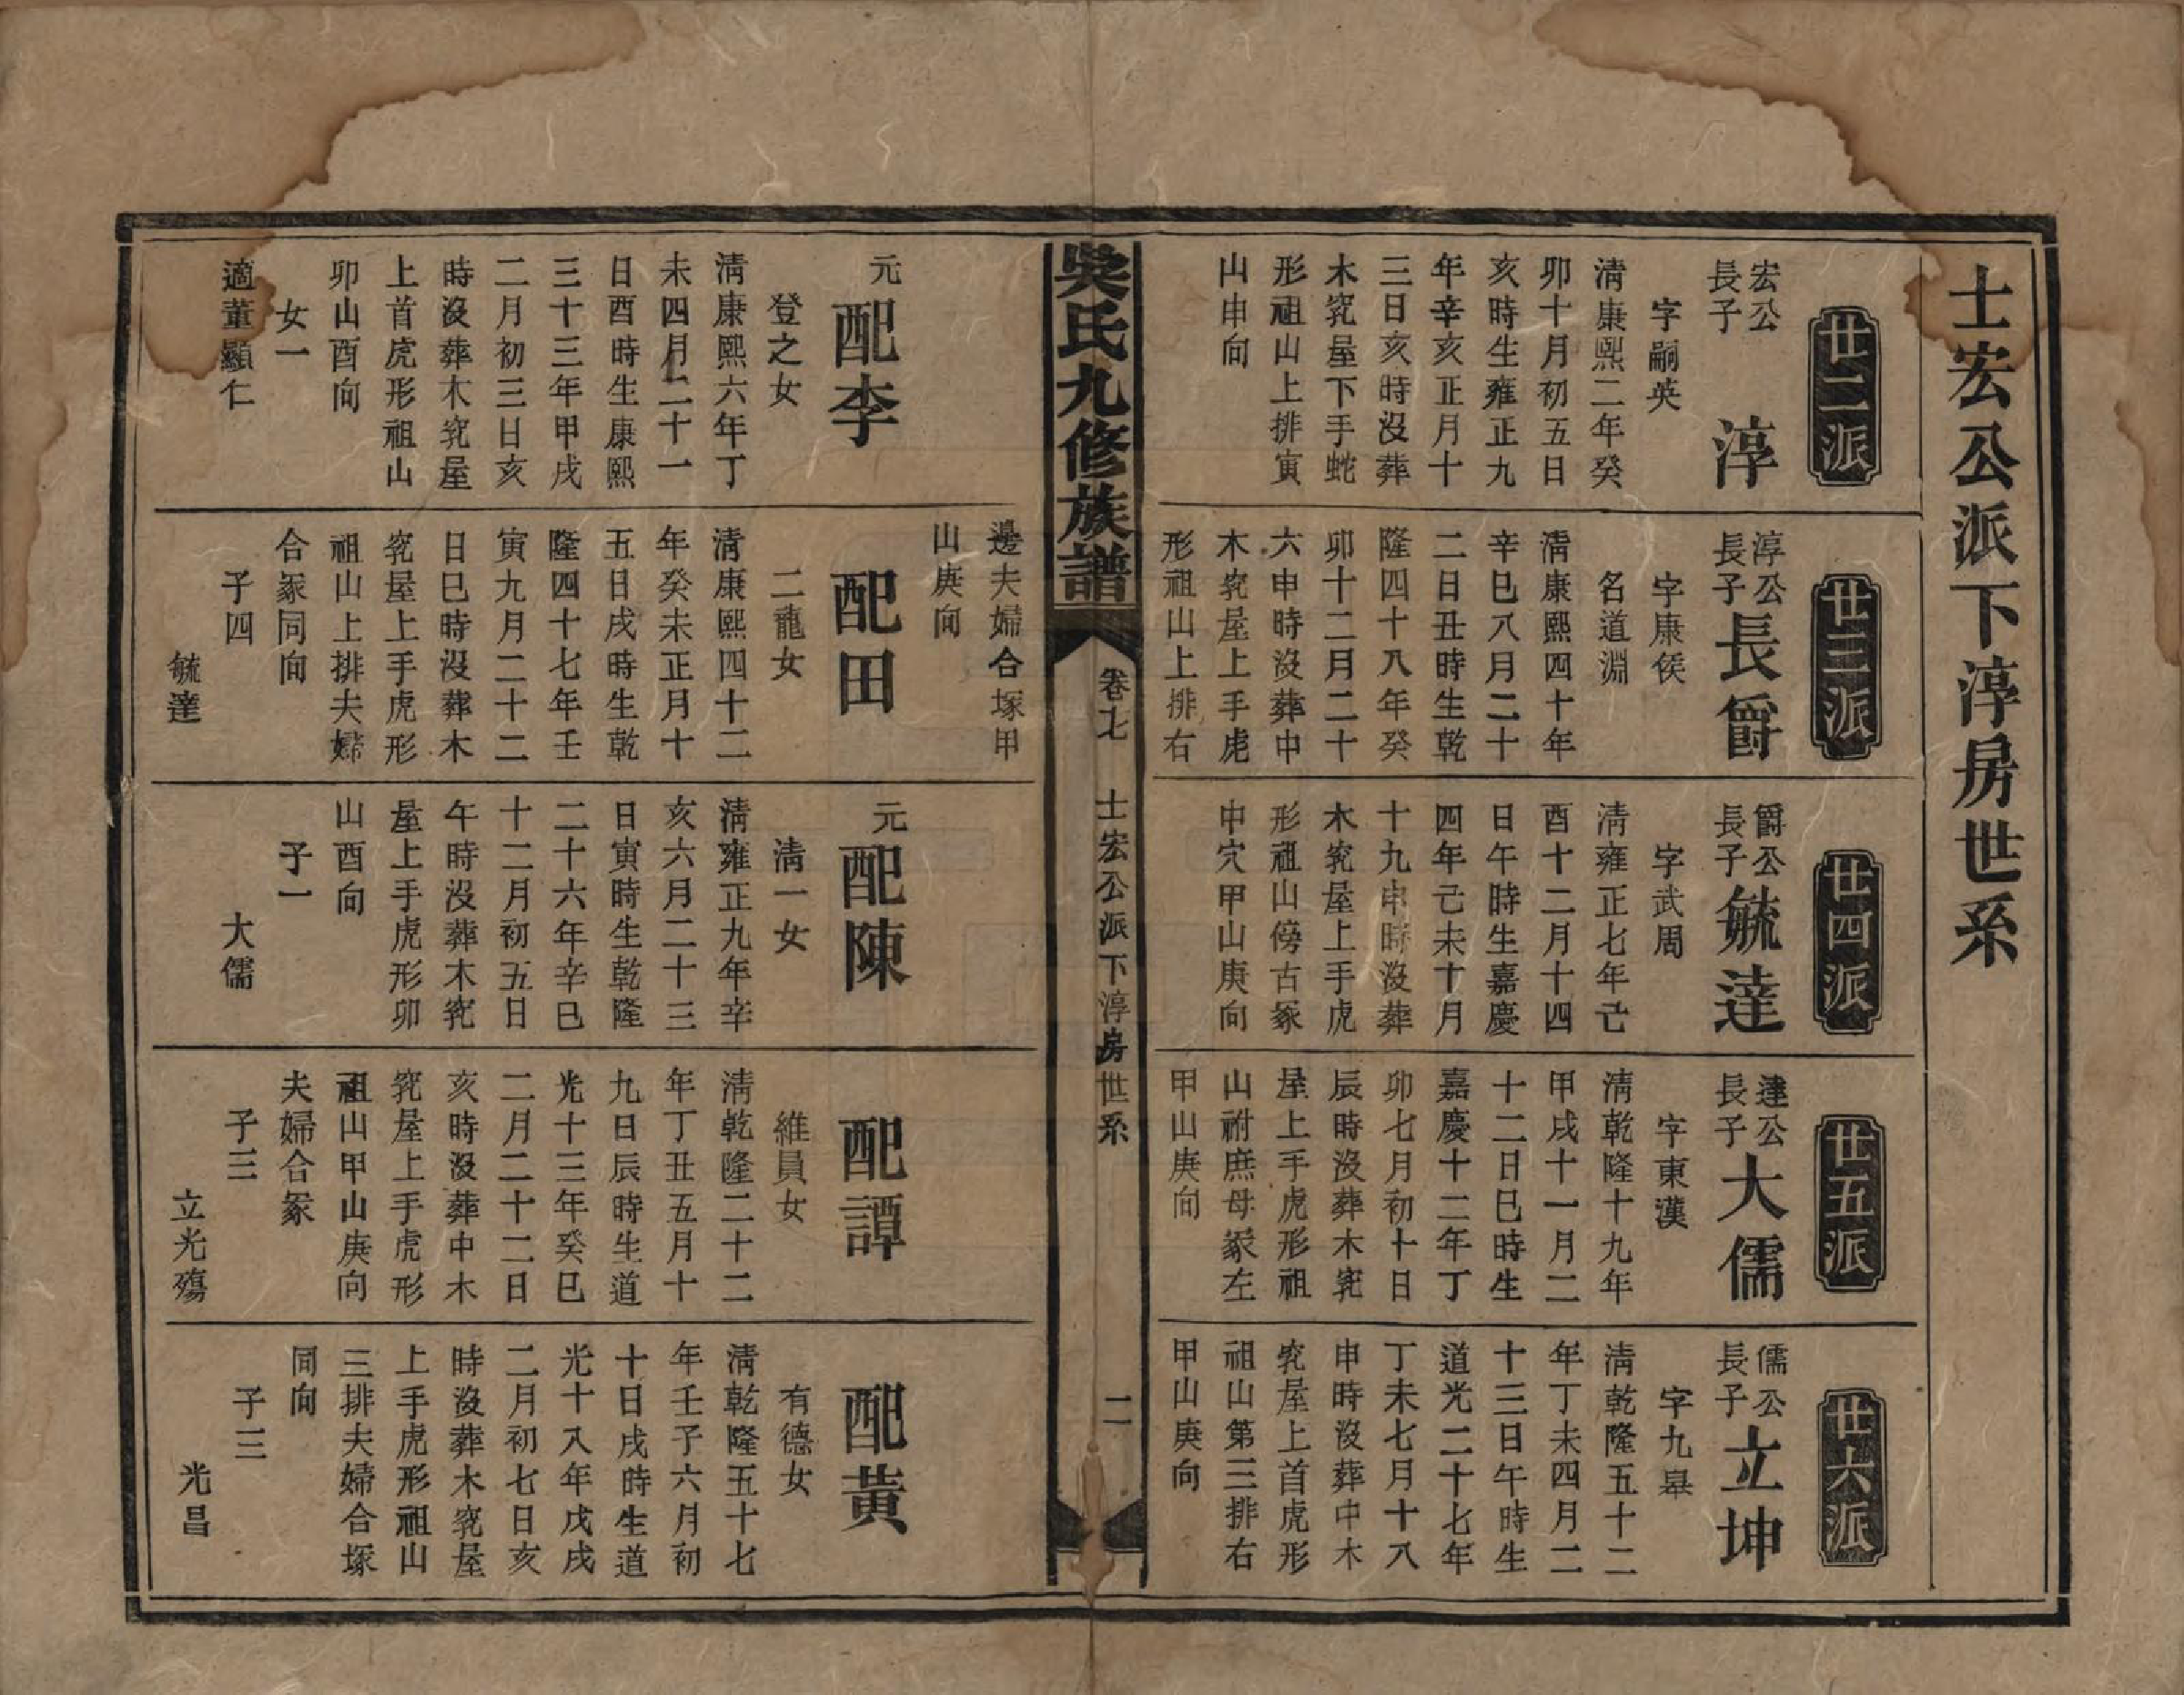 士宏公派下淳房世系
廿二派
宏公
長子
淳
字嗣英
清康熙二年癸
卯十月初五日
亥時生雍正九
年辛亥正月十
三日亥時沒葬
木䆒屋下手蛇
形祖山上排寅
山申向
廿三派
淳公
長子
長爵
字康侯
名道淵
清康熙四十年
辛巳八月二十
二日丑時生乾
隆四十八年癸
卯十二月二十
六申時沒葬中
木䆒屋上手虎
形祖山上排右
邊夫婦合塚甲
山庚向
廿四派
爵公
長子
毓達
字武周
清雍正七年己
酉十二月十四
日午時生嘉慶
四年己未十月
十九申時沒葬
木䆒屋上手虎
形祖山傍古冢
中穴甲山庚向
廿五派
達公
長子
大儒
字東漢
清乾隆十九年
甲戌十一月二
十二日巳時生
嘉慶十二年丁
卯七月初十日
辰時沒葬木䆒
屋上手虎形祖
山祔庶母冢左
甲山庚向
廿六派
儒公
長子
立坤
字九皋
清乾隆五十二
年丁未四月二
十三日午時生
道光二十七年
丁未七月十八
申時沒葬中木
䆒屋上首虎形
祖山第三排右
甲山庚向
吳氏九修族譜
卷七
士宏公派下淳房世系
二
元
配李
登之女
清康熙六年丁
未四月二十一
日酉時生康熙
三十三年甲戌
二月初三日亥
時沒葬木䆒屋
上首虎形祖山
卯山酉向
女一
適董顯仁
配田
二龍女
清康熙四十二
年癸未正月十
五日戌時生乾
隆四十七年壬
寅九月二十二
日巳時沒葬木
䆒屋上手虎形
祖山上排夫婦
合冢同向
子四
毓達
元
配陳
清一女
清雍正九年辛
亥六月二十三
日寅時生乾隆
二十六年辛巳
十二月初五日
午時沒葬木䆒
屋上手虎形卯
山酉向
子一
大儒
配譚
維員女
清乾隆二十二
年丁丑五月十
九日辰時生道
光十三年癸巳
二月二十二日
亥時沒葬中木
䆒屋上手虎形
祖山甲山庚向
夫婦合冢
子三
立光殤
配黃
有德女
清乾隆五十七
年壬子六月初
十日戌時生道
光十八年戊戌
二月初七日亥
時沒葬木䆒屋
上手虎形祖山
三排夫婦合塚
同向
子三
光昌